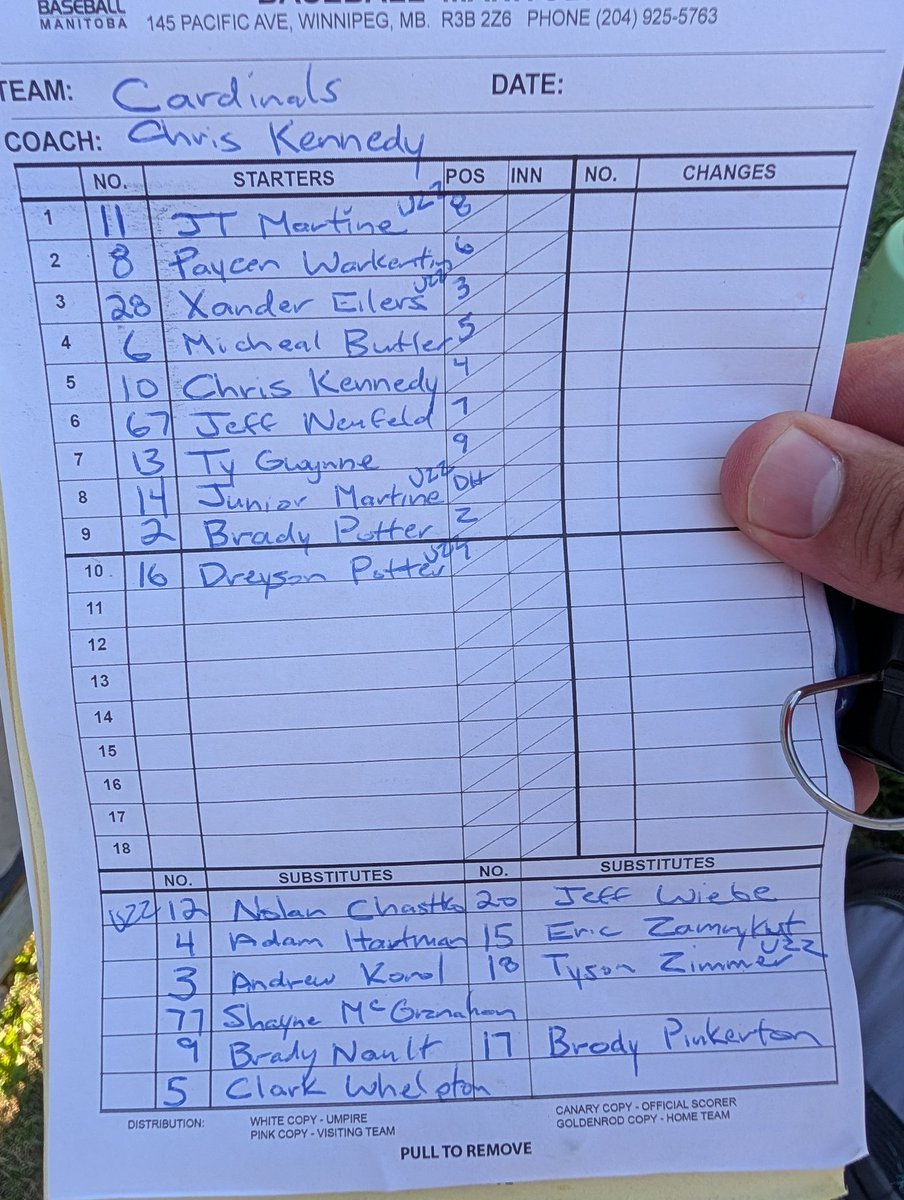 BASEBALL
MANITOBA
145 PACIFIC AVE, WINNIPEG, MB. R3B 2Z6 PHONE (204) 925-5763
TEAM: Cardinals DATE:
COACH: Chris Kennedy
NO. STARTERS POS INN NO. CHANGES
1 11 JT Martine U22 8
2 8 Paycen Warkentin 6
3 28 Xander Eilers U22 3
4 6 Micheal Butler 5
5 10 Chris Kennedy 4
6 67 Jeff Neufeld 7
7 13 Ty Gwynne 9
8 14 Junior Martine U22 DH
9 2 Brady Potter 2
10 16 Dreyson Potter
11
12
13
14
15
16
17
18
NO. SUBSTITUTES NO. SUBSTITUTES
U22 12 Nolan Chastko 20 Jeff Wiebe
4 Adam Hartman 15 Eric
3 Andrew Korol 18 Tyson Zimmer U22
77 Shayne McGranahan
9 Brady Nault 17 Brody Pinkerton
5 Clark Whelpton
DISTRIBUTION: WHITE COPY - UMPIRE CANARY COPY - OFFICIAL SCORER
PINK COPY - VISITING TEAM GOLDENROD COPY - HOME TEAM
PULL TO REMOVE